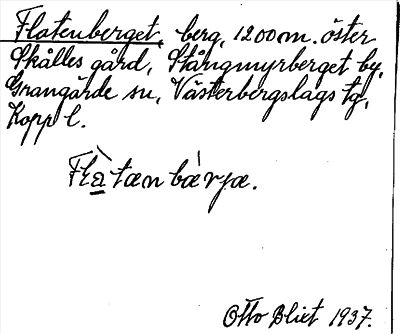 Flatenberget, berg, 1200 m. öster
Skålles gård, Stångmyrberget by,
Grangärde sn, Västerbergslags tg,
Kopp l.
Flàtæn bǽrjæ.
Otto Blixt 1937.